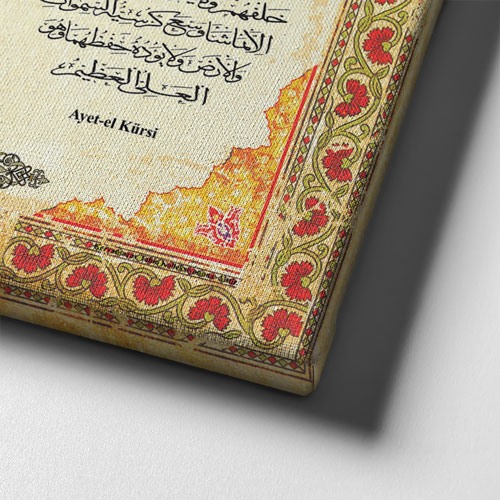 خلفهم ولا
إلا بما شاء وسع كرسيه السموات
والأرض ولا يؤده حفظهما وهو
العلي العظيم
Ayet-el Kürsi